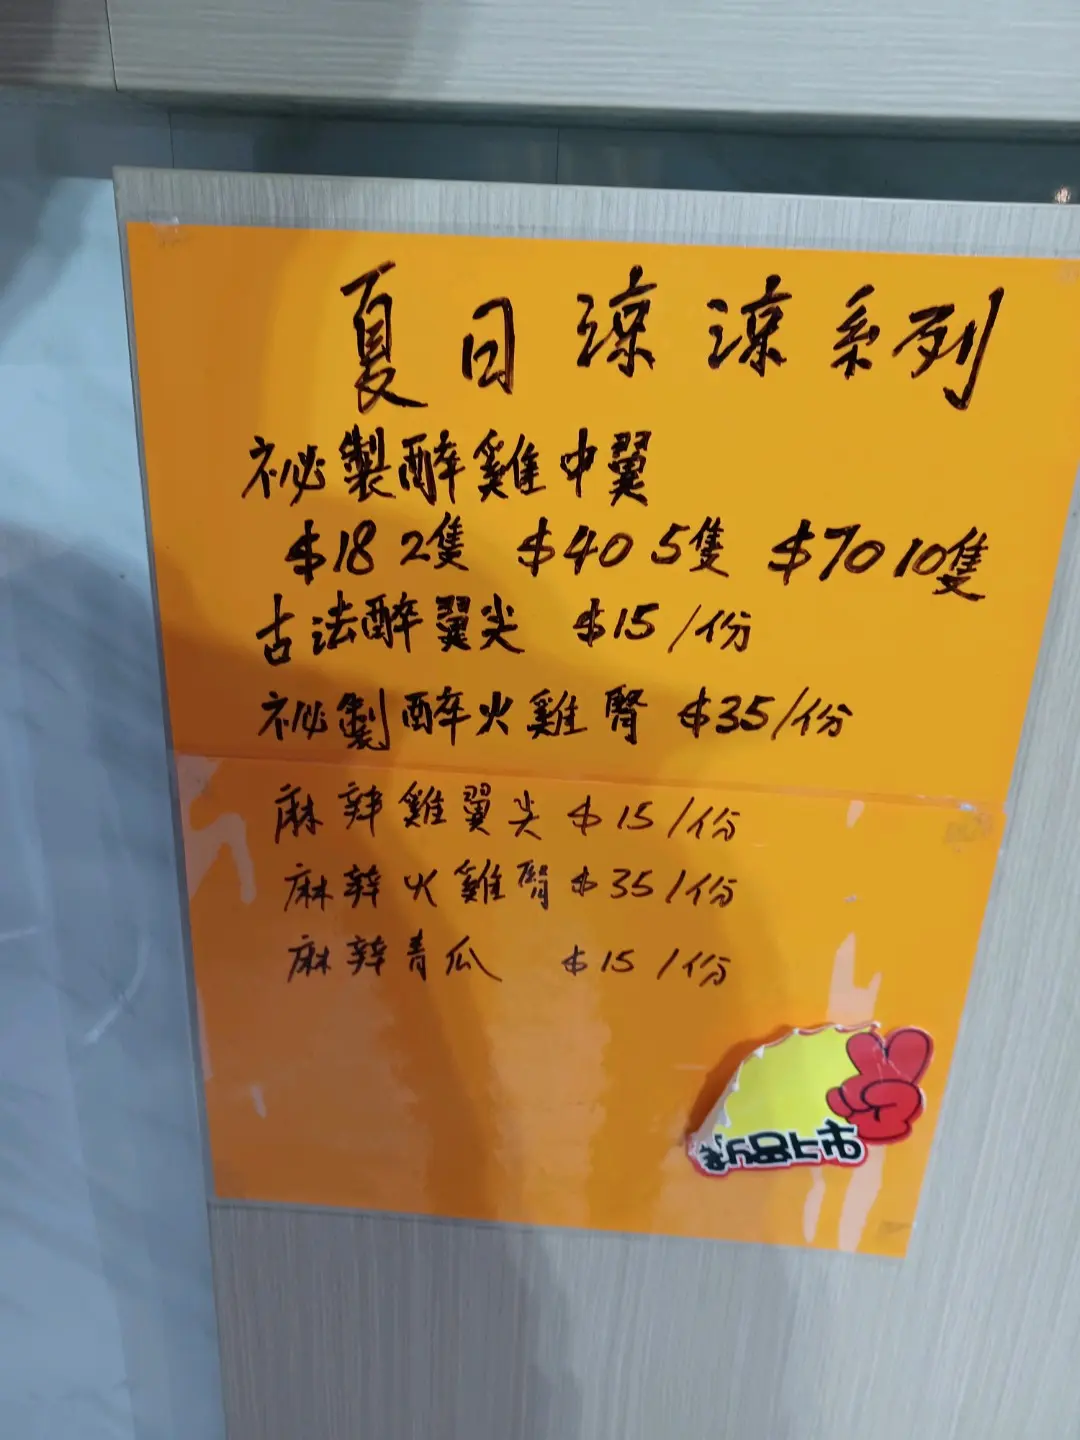 夏日涼涼系列
祕製醉雞中翼
$18 2隻 $40 5隻 $70 10隻
古法醉翼尖 $15/份
祕製醉火雞腎 $35/份
麻辣雞翼尖 $15/份
麻辣火雞腎 $35/份
麻辣青瓜 $15/份
新品上市